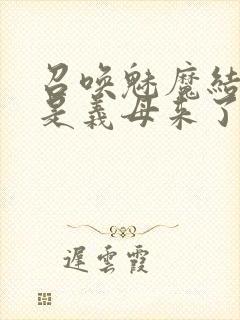 召唤魅魔结
是義母来了
遲雲霞